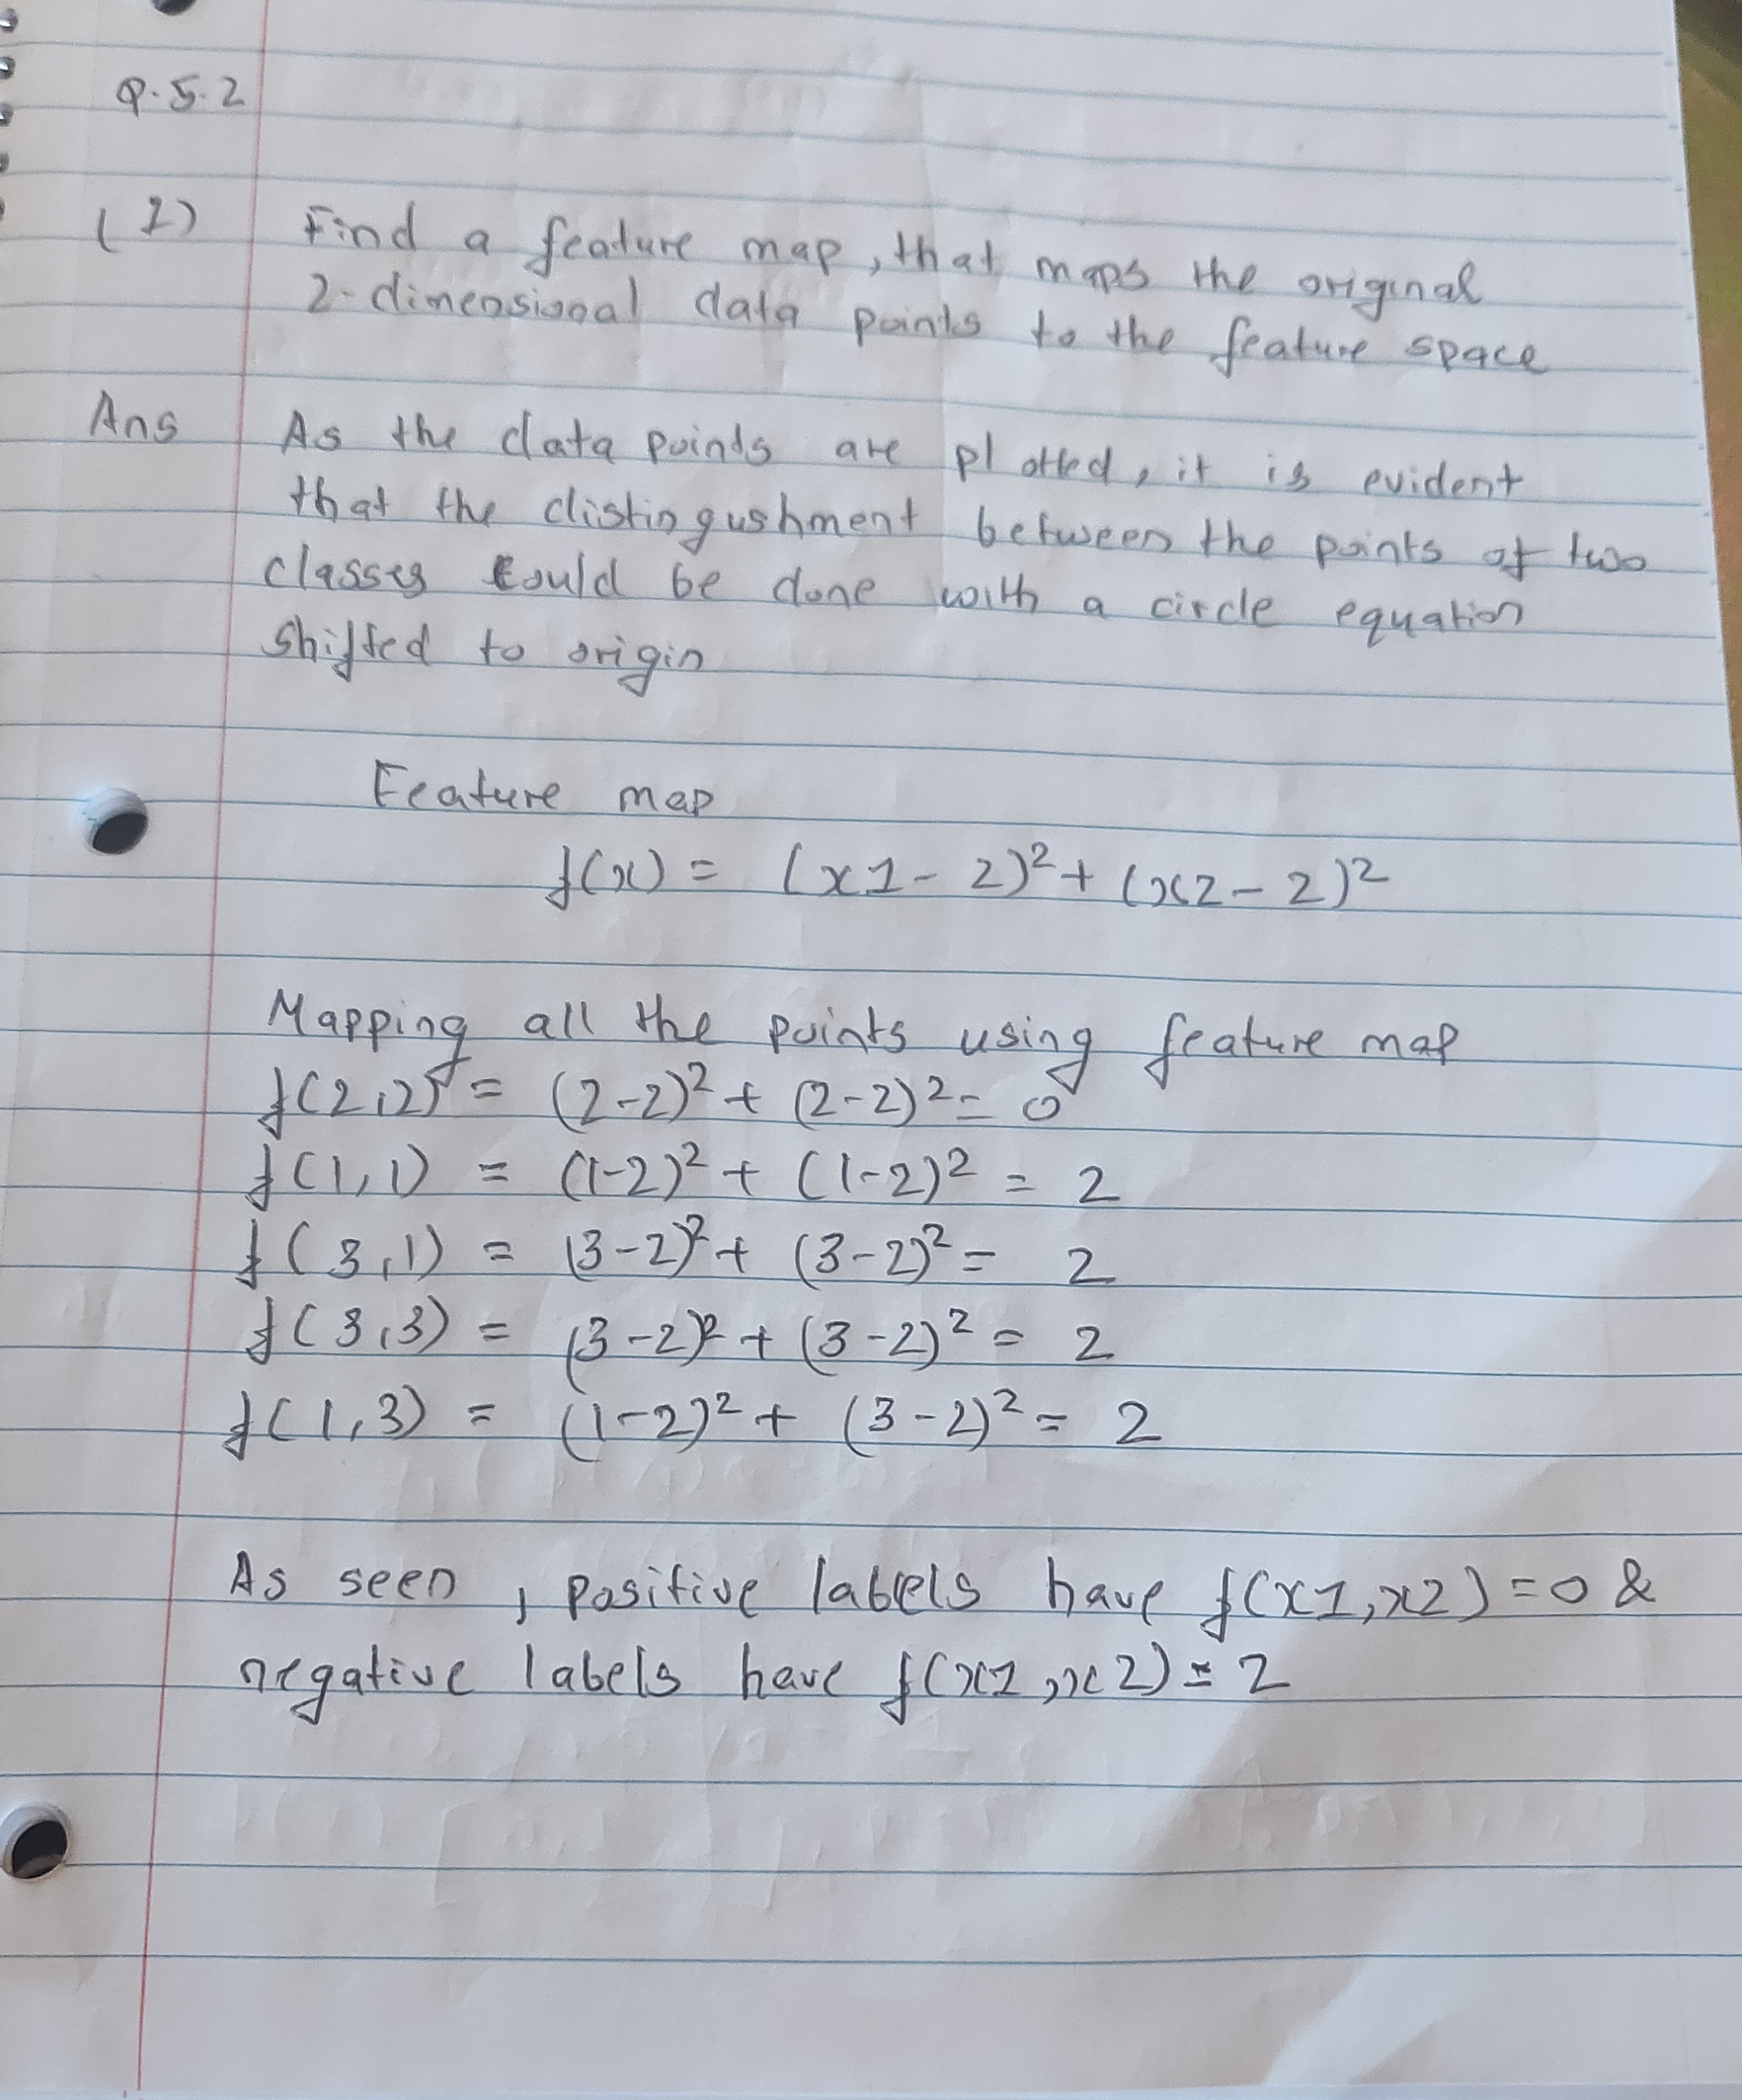 Q.5.2
(1) Find a feature map, that maps the original
2-dimensional data points to the feature space
Ans As the data points are plotted, it is evident
that the distingushment between the points of two
classes could be done with a circle equation
shifted to origin
Feature map
f(x) = (x1 - 2)² + (x2 - 2)²
Mapping all the points using feature map
f(2,2) = (2-2)² + (2-2)² = 0
f(1,1) = (1-2)² + (1-2)² = 2
f(3,1) = (3-2)² + (3-2)² = 2
f(3,3) = (3-2)² + (3-2)² = 2
f(1,3) = (1-2)² + (3-2)² = 2
As seen, positive labels have f(x1,x2) = 0 &
negative labels have f(x1,x2) = 2